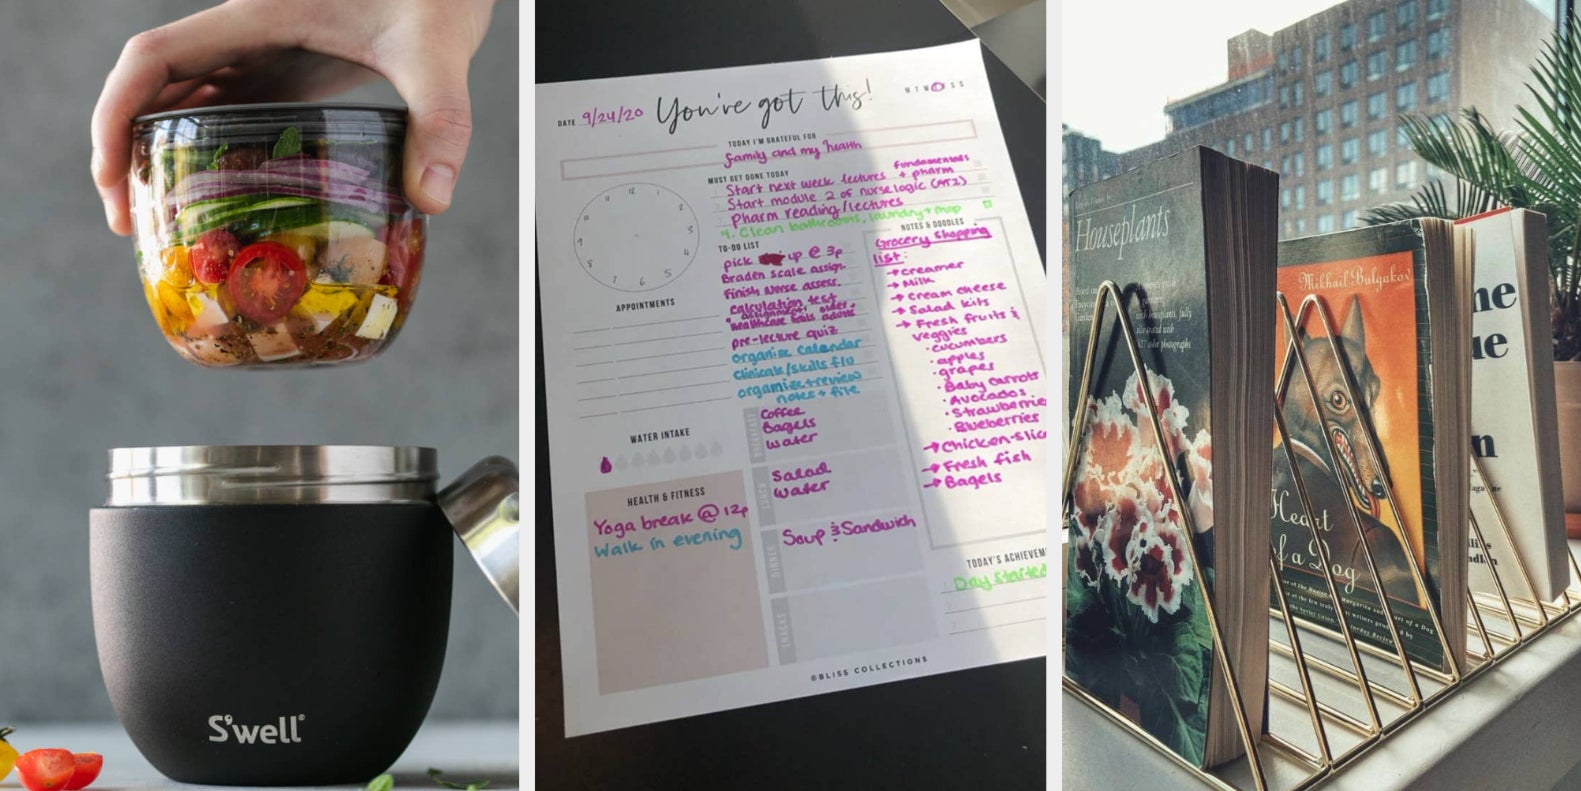 S'well
DATE 9/24/20
You've got this!
M T W T F S S
TODAY I'M GRATEFUL FOR
family and my health
MUST GET DONE TODAY
Start next week lectures fundamentals + pharm
Start module 2 of nurse logic (ATI)
pharm reading/lectures
4. Clean bathrooms, laundry + mop
12
1
2
3
4
5
6
7
8
9
10
11
TO-DO LIST
pick up @ 3p
Braden scale assign.
Finish nurse assess.
calculation test
pre-lecture quiz
organize calendar
Clinicals/skills f/u
organize + review
notes + file
APPOINTMENTS
WATER INTAKE
HEALTH & FITNESS
Yoga break @ 12p
Walk in evening
BREAKFAST
Coffee
Bagels
Water
LUNCH
Salad
Water
DINNER
Soup & Sandwich
SNACKS
NOTES & DOODLES
Grocery shopping
list:
→ creamer
→ Milk
→ cream cheese
→ Salad kits
→ Fresh fruits &
veggies
· cucumbers
· apples
· grapes
· Baby carrots
· Avocados
· Strawberries
· Blueberries
→ Chicken-slic
→ Fresh fish
→ Bagels
TODAY'S ACHIEVEM
Day started
©BLISS COLLECTIONS
Houseplants
Mikhail Bulgakov
Heart
of a Dog